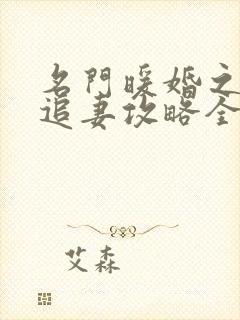 名門暖婚之
追妻攻略全
艾森